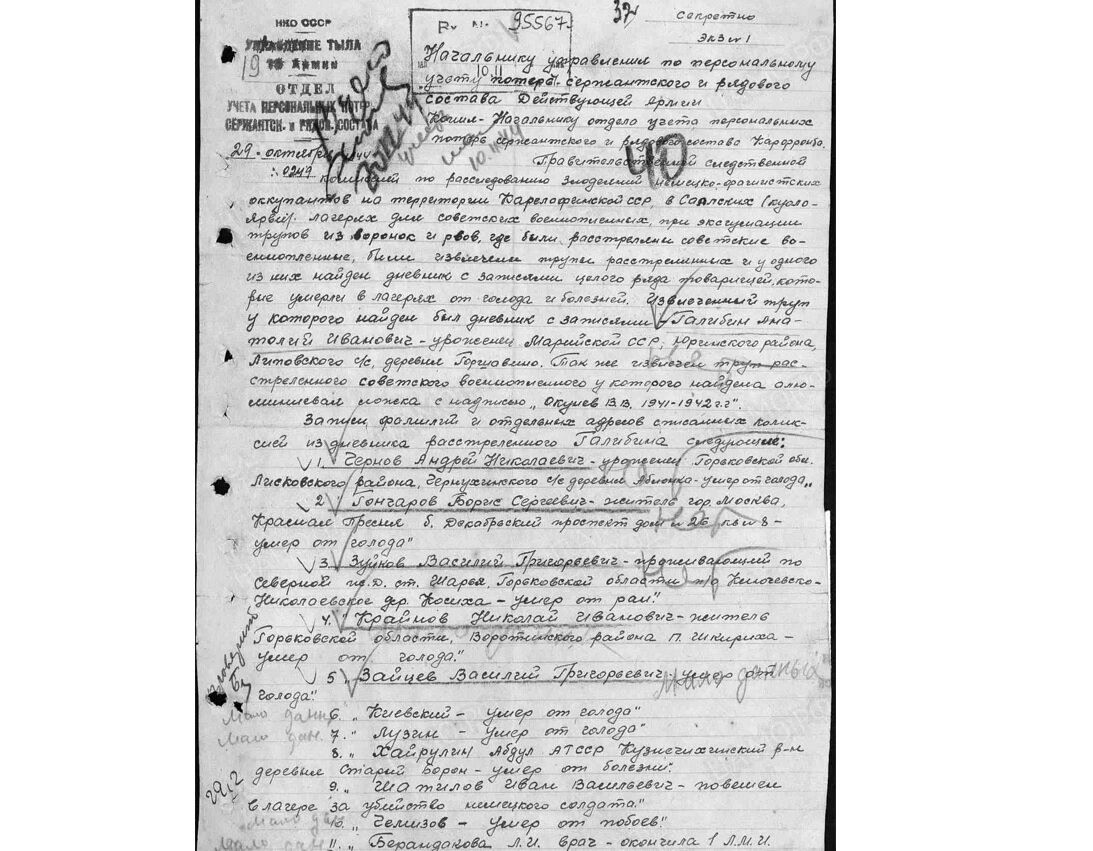 НКО СССР
УПРАВЛЕНИЕ ТЫЛА
19 Армии
ОТДЕЛ
УЧЕТА ПЕРСОНАЛЬНЫХ ПОТЕР
СЕРЖАНТСК. и РЯДОВ. СОСТАВА
29. октября
0249
Вх. №. 95567.
10 11
37
секретно
экз № 1
Начальнику управления по персональному
учету потерь сержантского и рядового
состава Действующей Армии
Копия - Начальнику отдела учета персональных
потерь сержантского и рядового состава Карфронта.
10.11.44
40
Правительственной следственной
комиссией по расследованию злодеяний немецко-фашистских
оккупантов на территории Карелофинской ССР, в Салских (куоло-
ярви). лагерях для советских военнопленных, при эксгумации
трупов из воронок и рвов, где были расстреляны советские во-
еннопленные, были извлечены трупы расстрелянных и у одного
из них найден дневник с записями целого ряда товарищей, кото-
рые умерли в лагерях от голода и болезней. Извлеченный труп
у которого найден был дневник с записями - Галибин Ана-
толий Иванович - уроженец Марийской ССР, Юринского района,
Липовского с/с, деревня Горшавино. Так же извлечен труп рас-
стреленного советского военнопленного у которого найдена алю-
миниевая ложка с надписью „Окунев В.В. 1941-1942 г.г".
Записи фамилий и отдельных адресов списанных комис-
сией из дневника расстреленного Галибина следующие:
1. Чернов Андрей Николаевич - уроженец Горьковской обл.
Лисковского района, Чернухинского с/с деревня Яблонка - умер от голода"
2. Гончаров Борис Сергеевич - житель гор. Москва,
Красная Пресня б. Декабрьский проспект дом № 26, кв № 8 -
умер от голода"
3. Зуйков Василий Григорьевич - проживающий по
Северной ж.д. ст. Шарья Горьковской области п/о
Николаевское дер. Косиха - умер от ран."
4. Крайнов Николай Иванович - житель
Горьковской области, Воротынского района п. Шкириха -
умер от голода."
5. Зайцев Василий Григорьевич - умер от
голода".
Мало данных
Мало данн. 6. „Киевский - умер от голода"
Мало дан. 7. „Лузин - умер от голода"
8. „Хайрулин Абдул АТССР Кузнечихинский р-н
деревня Старый Борон - умер от болезни".
9. „Шатилов Иван Васильевич - повешен
в лагере за убийство немецкого солдата."
Мало дан. 10. „Чемизов - умер от побоев".
Мало дан. 11. „Берандакова Л.И. врач - окончила 1 Л.М.И.